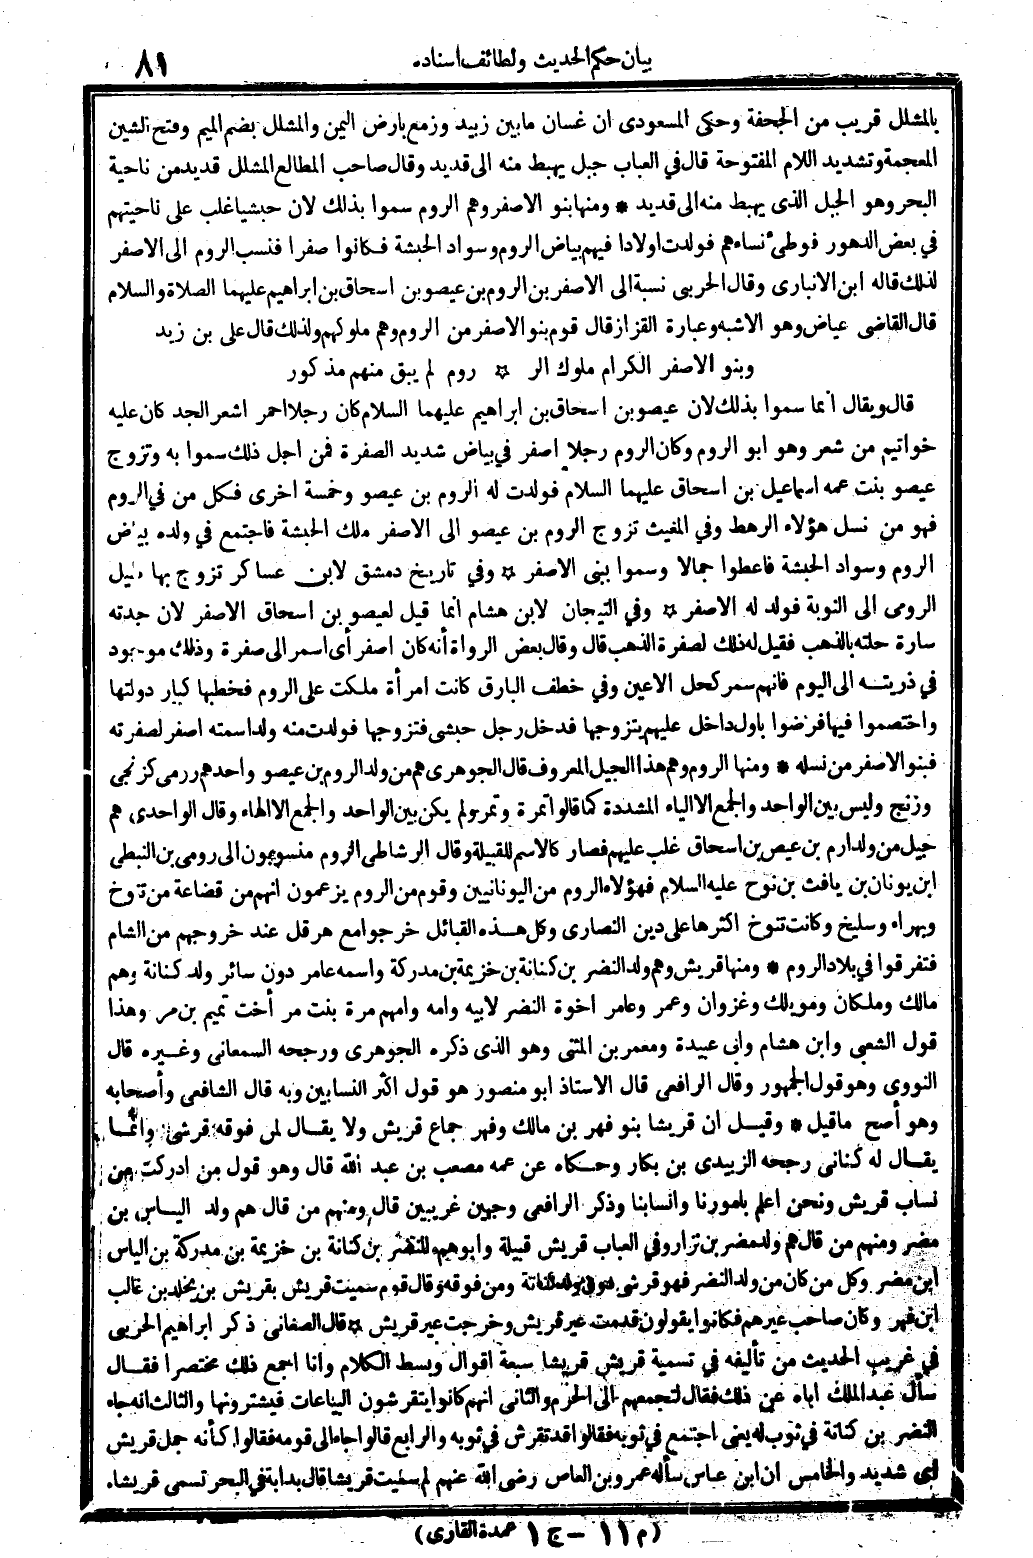 بيان حكم الحديث ولطائف اسناده
٨١
بالمشلل قريب من الجحفة وحكى المسعودى ان غسان مابين زبيد وزمع بارض اليمن والمشلل بضم الميم وفتح الشين
المعجمة وتشديد اللام المفتوحة قال في العباب جبل يهبط منه الى قديد وقال صاحب المطالع المشلل قديد من ناحية
البحر وهو الجبل الذى يهبط منه الى قديد * ومنها بنو الاصفر وهم الروم سموا بذلك لان حبشيا غلب على ناحيتهم
في بعض الدهور فوطئ نساءهم فولدت اولادا فيهم بياض الروم وسواد الحبشة فكانوا صفرا فنسب الروم الى الاصفر
لذلك قاله ابن الانبارى وقال الحربى نسبة الى الاصفر بن الروم بن عيصو بن اسحاق بن ابراهيم عليهما الصلاة والسلام
قال القاضى عياض وهو الاشبه وعبارة القزاز قال قوم بنو الاصفر من الروم وهم ملوكهم ولذلك قال على بن زيد
وبنو الاصفر الكرام ملوك الر ☆ روم لم يبق منهم مذكور
قال ويقال انما سموا بذلك لان عيصو بن اسحاق بن ابراهيم عليهما السلام كان رجلا احمر اشعر الجلد كان عليه
خواتيم من شعر وهو ابو الروم وكان الروم رجلا اصفر في بياض شديد الصفرة فمن اجل ذلك سموا به وتزوج
عيصو بنت عمه اسماعيل بن اسحاق عليهما السلام فولدت له الروم بن عيصو وخمسة اخرى فكل من في الروم
فهو من نسل هؤلاء الرهط وفي المغيث تزوج الروم بن عيصو الى الاصفر ملك الحبشة فاجتمع في ولده بياض
الروم وسواد الحبشة فاعطوا جمالا وسموا ببنى الاصفر ☆ وفي تاريخ دمشق لابن عساكر تزوج بها
الرومى الى النوبة فولد له الاصفر ☆ وفي التيجان لابن هشام انما قيل لعيصو بن اسحاق الاصفر لان جدته
سارة حلته بالذهب فقيل له ذلك لصفرة الذهب قال وقال بعض الرواة أنه كان اصفر أى اسمر الى صفرة وذلك موجود
في ذريته الى اليوم فانهم سمر كحل الاعين وفي خطف البارق كانت امرأة ملكت على الروم فخطبها كبار دولتها
واختصموا فيها فرضوا باول داخل عليهم يتزوجها فدخل رجل حبشى فتزوجها فولدت منه ولدا سمته اصفر لصفرته
فبنو الاصفر من نسله * ومنها الروم وهم هذا الجيل المعروف قال الجوهرى هم من ولد الروم بن عيصو واحدهم رومى كزنجى
وزنج وليس بين الواحد والجمع الا الياء المشددة كما قالوا تمرة وتمر ولم يكن بين الواحد والجمع الا الهاء وقال الواحدى هم
جيل من ولد ارم بن عيص بن اسحاق غلب عليهم فصار كالاسم للقبيلة وقال الرشاطى الروم منسوبون الى رومى بن النبطى
ابن يونان بن يافث بن نوح عليه السلام فهؤلاء الروم من اليونانيين وقوم من الروم يزعمون انهم من قضاعة من تنوخ
وبهراء وسليخ وكانت تنوخ اكثرها على دين النصارى وكل هذه القبائل خرجوا مع هرقل عند خروجهم من الشام
فتفرقوا في بلاد الروم * ومنها قريش وهم ولد النضر بن كنانة بن خزيمة بن مدركة واسمه عامر دون سائر ولد كنانة وهم
مالك وملكان ومويلك وغزوان وعمر وعامر اخوة النضر لابيه وامه وامهم مرة بنت مر أخت تميم بن مر وهذا
قول الشعبى وابن هشام وابى عبيدة ومعمر بن المثنى وهو الذى ذكره الجوهرى ورجحه السمعانى وغيره قال
النووى وهو قول الجمهور وقال الرافعى قال الاستاذ ابو منصور هو قول اكثر النسابين وبه قال الشافعى وأصحابه
وهو أصح ماقيل * وقيل ان قريشا بنو فهر بن مالك وفهر جماع قريش ولا يقال لمن فوقه قرشى وانما
يقال له كنانى رجحه الزبيدى بن بكار وحكاه عن عمه مصعب بن عبد الله قال وهو قول من ادركت من
نساب قريش ونحن اعلم بامورنا وانسابنا وذكر الرافعى وجهين غريبين قال ومنهم من قال هم ولد الياس بن
مضر ومنهم من قال هم ولد مضر بن نزار وفي العباب قريش قبيلة وابوهم النضر بن كنانة بن خزيمة بن مدركة بن الياس
ابن مضر وكل من كان من ولد النضر فهو قرشى دون ولد كنانة ومن فوقه وقال قوم سميت قريش بقريش بن يخلد بن غالب
ابن فهر وكان صاحب عيرهم فكانوا يقولون قدمت عير قريش وخرجت عير قريش ☆ قال الصغانى ذكر ابراهيم الحربى
في غريب الحديث من تأليفه في تسمية قريش قريشا سبعة اقوال وبسط الكلام وانا اجمع ذلك مختصرا فقال
سأل عبد الملك اباه عن ذلك فقال لتجمعهم الى الحرم والثانى انهم كانوا يتقرشون البياعات فيشترونها والثالث انه جاء
النضر بن كنانة في ثوب له يعنى اجتمع في ثوبه فقالوا قد تقرش في ثوبه والرابع قالوا جاء الى قومه فقالوا كأنه جمل قريش
اى شديد والخامس ان ابن عباس سأله عمرو بن العاص رضى الله عنهم لم سميت قريشا قال بدابة في البحر تسمى قريشا.
(م ١١ – ج ١ عمدة القارى)